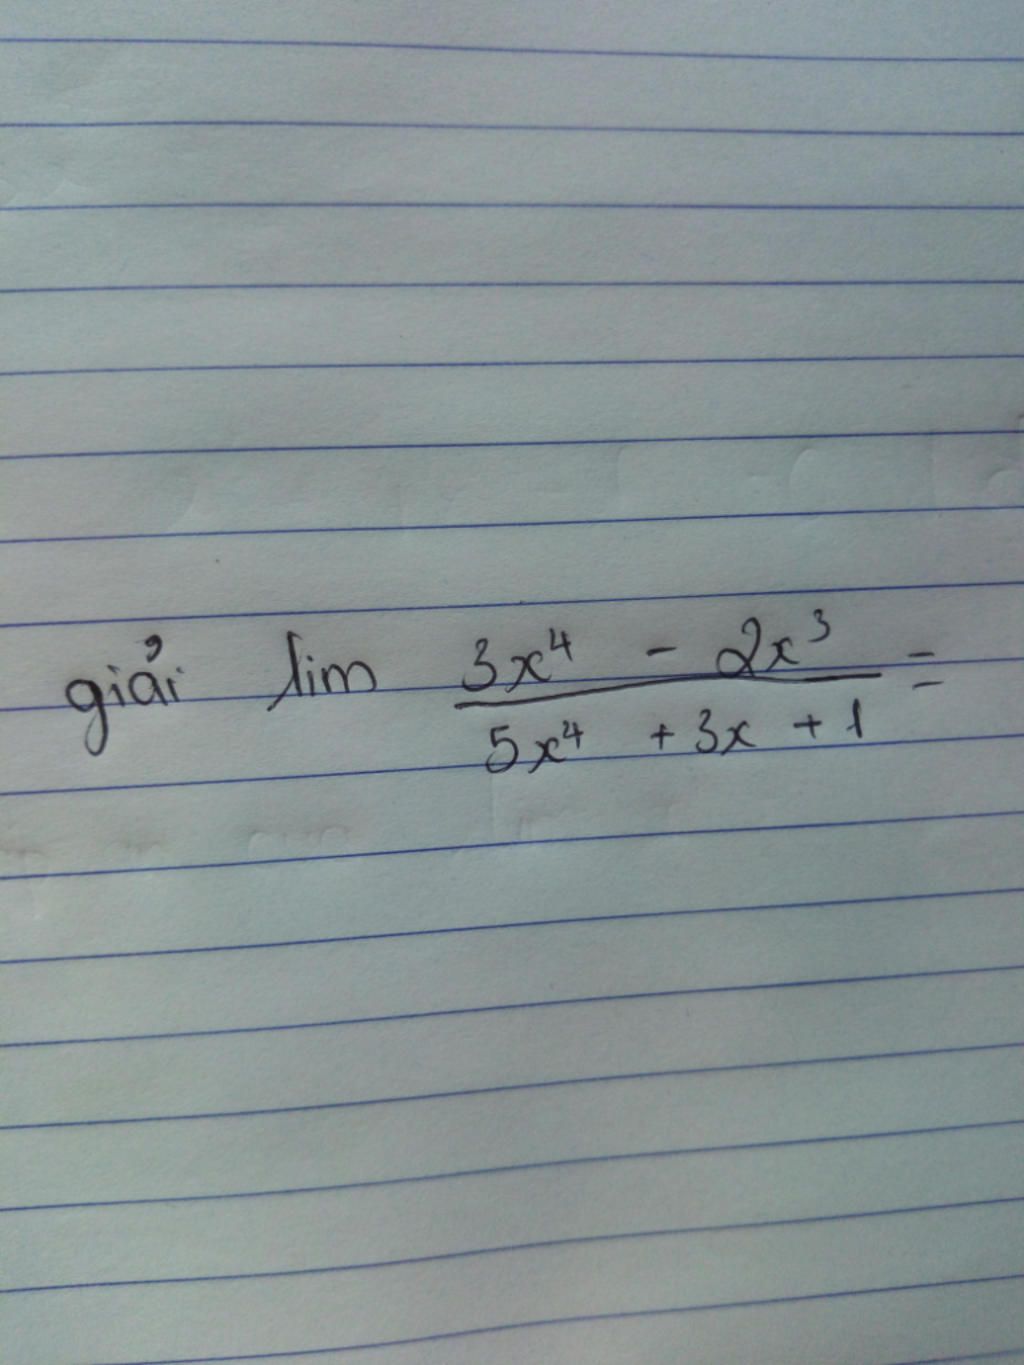 giải lim (3x⁴ - 2x³)/(5x⁴ + 3x + 1) =